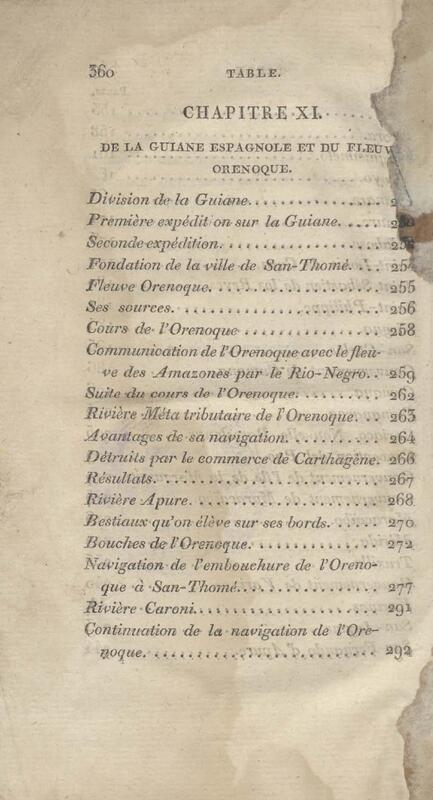 360 TABLE.
CHAPITRE XI.
DE LA GUIANE ESPAGNOLE ET DU FLEUV
ORENOQUE.
Division de la Guiane. . . . . . . . . . . . . . 2
Première expédit on sur la Guiane. . . . . .
Seconde expédition. . . . . . . . . . . . . . . .
Fondation de la ville de San-Thomé. . . . 254
Fleuve Orenoque. . . . . . . . . . . . . . . . . 255
Ses sources. . . . . . . . . . . . . . . . . . . . . 256
Cours de l'Orenoque . . . . . . . . . . . . . . 258
Communication de l'Orenoque avec le fleu-
ve des Amazones par le Rio-Negro. . 259
Suite du cours de l'Orenoque. . . . . . . . 262
Rivière Méta tributaire de l'Orenoque. . . 263
Avantages de sa navigation. . . . . . . . . . 264
Détruits par le commerce de Carthagène. 266
Résultats. . . . . . . . . . . . . . . . . . . . . . . 267
Rivière Apure. . . . . . . . . . . . . . . . . . . 268
Bestiaux qu'on élève sur ses bords. . . . . 270
Bouches de l'Orenoque. . . . . . . . . . . . . 272
Navigation de l'embouchure de l'Oreno-
que à San-Thomé. . . . . . . . . . . . . . 277
Rivière Caroni. . . . . . . . . . . . . . . . . . . 291
Continuation de la navigation de l'Ore-
noque. . . . . . . . . . . . . . . . . . . . . . 292